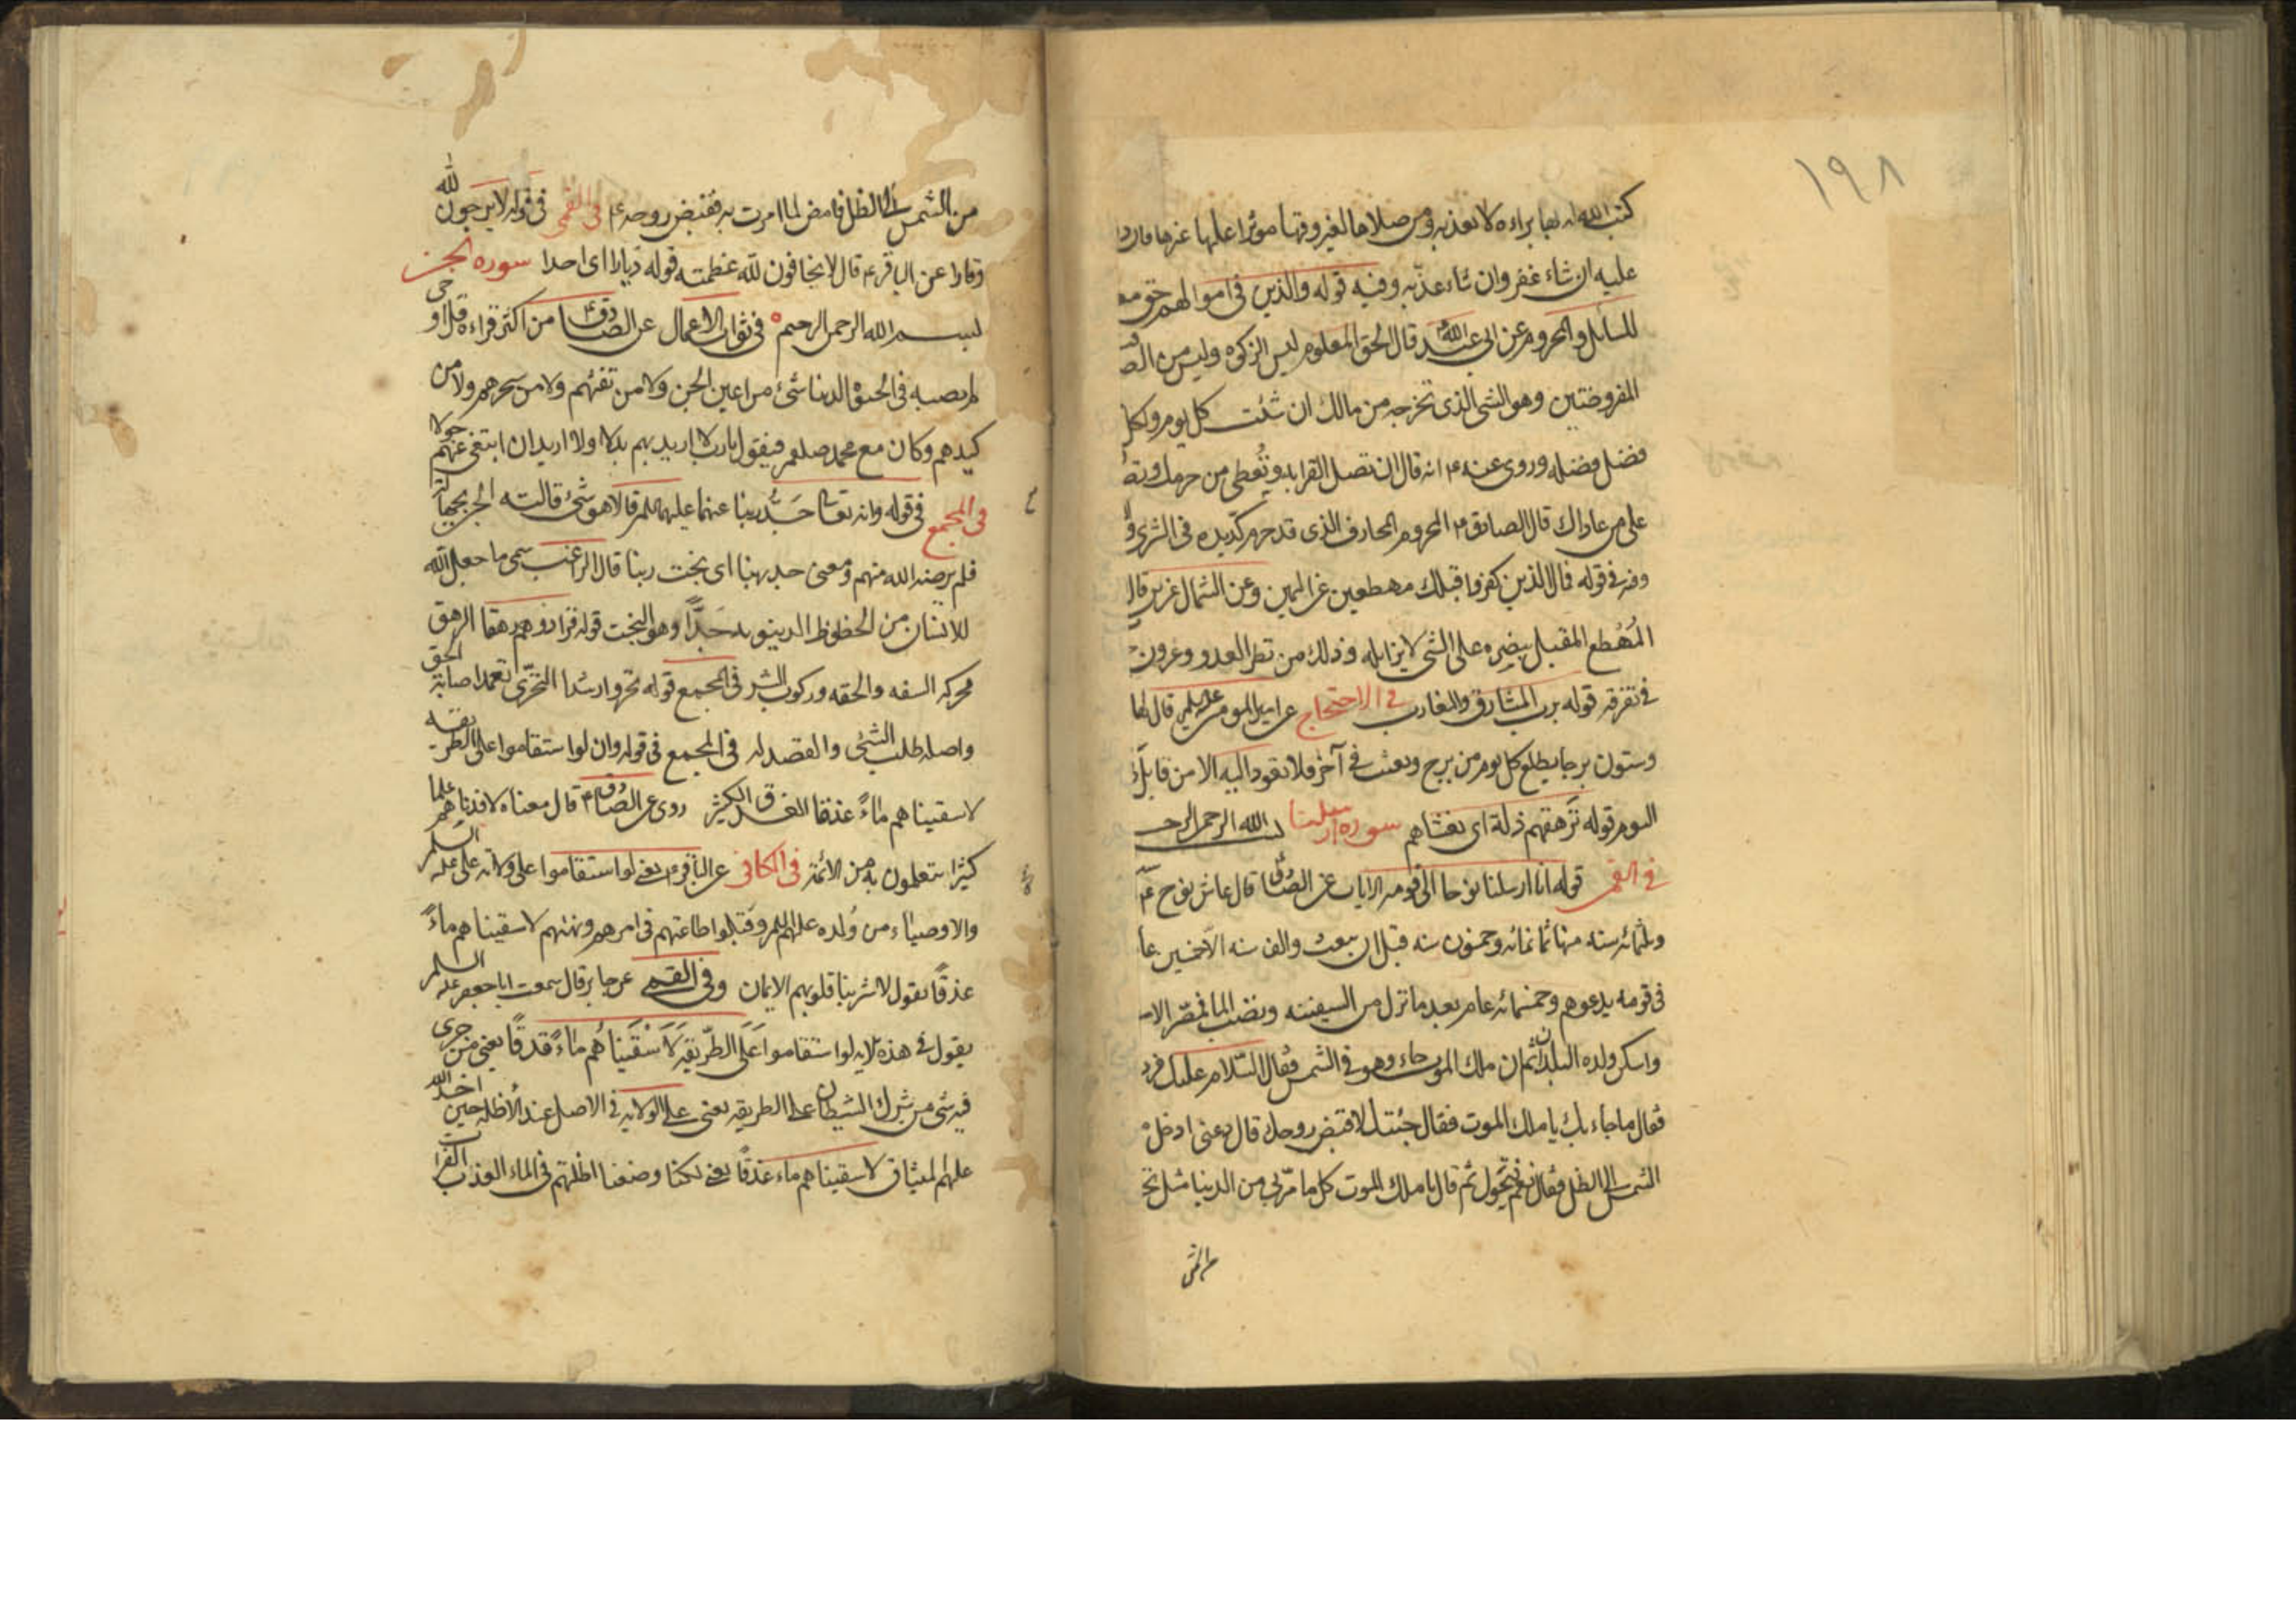 ١٩٨
كتب الله له بها براءه لا يعذبه ومن صلاها لغير وقتها مؤثرا عليها غيرها فان
عليه ان شاء غفر وان شاء عذبه وفيه قوله والذين فى اموالهم حق مع
للسائل والمحروم عن ابى عبد الله قال الحق المعلوم ليس الزكوه وليس من الص
المفروضتين وهو الشى الذى تخرجه من مالك ان شئت كل يوم ولكل
فضل فضله وروى عنه ع انه قال ان تصل القرابه وتعطى من حرمك وتص
على من عاداك قال الصادق ع المحروم المحارف الذى قد حرم كد يده فى الشرى و
وفيه فى قوله فمال الذين كفروا قبلك مهطعين عن اليمين وعن الشمال عزين قال
المهطع المقبل ببصره على الشى لا يزايله وذلك من نظر العدو وعزون
فى تفرقه قوله برب المشارق والمغارب فى الاحتجاج عن امير المومنين عليه السلم قال لها
وستون برجا يطلع كل يوم من برج ويغيب فى آخر فلا تعود اليه الا من قابل
اليوم قوله ترهقهم ذلة اى تغشاهم سوره ارسلنا بسم الله الرحمن الرحيم
فى القمى قوله انا ارسلنا نوحا الى قومه الايات عن الصادق قال عاش نوح ع
وثلثمائه سنه منها ثمانمائه وخمسون سنه قبل ان يبعث والف سنه الا خمسين عا
فى قومه يدعوهم وخمسمائه عام بعد ما نزل من السفينه ونضب الما فمصر الام
واسكن ولده البلدان ثم ان ملك الموت جاءه وهو فى الشمس فقال السلام عليك فرد
فقال ما جاء بك يا ملك الموت فقال جئتك لاقبض روحك قال دعنى ادخل
الشمس الى الظل فقال نعم فتحول ثم قال يا ملك الموت كل ما مر بى من الدنيا مثل تح
من الشمس
من الشمس الى الظل فامض لما امرت به فقبض روحه ع فى القمى فى قوله لا يرجون لله
وقارا عن الباقر ع قال لا تخافون لله عظمته قوله ديارا اى احدا سوره الجن
بسم الله الرحمن الرحيم فى ثواب الاعمال عن الصادق ع من اكثر قراءه قل اوحى
لم يصبه فى الحيوة الدنيا شئ من اعين الجن ولا من نفثهم ولا من سحرهم ولا من
كيدهم وكان مع محمد صلعم فيقول يا رب لا اريد بهم بدلا ولا اريد ان ابتغى عنهم حولا
فى المجمع فى قوله وانه تعالى جد ربنا عنهما عليهما السلم قالا هو شئ قالته الجن بجهالة
فلم يرضه الله منهم ومعنى جد ربنا اى بخت ربنا قال الراغب سمى ما جعل الله
للانسان من الحظوظ الدينويه جدا وهو البخت قوله فزادوهم رهقا الرهق
محركه السفه والخفه وركوب الشر فى المجمع قوله تحروا رشدا التحرى تعمد اصابة الحق
واصله طلب الشئ والقصد له فى المجمع فى قوله وان لو استقاموا على الطريقه
لاسقيناهم ماءً غدقا الغدق الكثير روى عن الصادق ع قال معناه لافدناهم علما
كثيرا يتعلمون به من الائمة فى الكافى عن الباقر ع يعنى لو استقاموا على ولايه على عليه السلم
والاوصياء من ولده عليهم السلم وقبلوا طاعتهم فى امرهم ونهيهم لاسقيناهم ماءً
غدقًا يقول لاشربنا قلوبهم الايمان وفى القمى عن جابر قال سمعت ابا جعفر عليه السلم
يقول فى هذه الايه لو استقاموا على الطريقه لاسقيناهم ماءً غدقًا يعنى من جرى
فيه شى من شرك الشيطان على الطريقه يعنى على الولايه فى الاصل عند الاظله حين اخذ الله
عليهم الميثاق لاسقيناهم ماء غدقًا يعنى لكنا وضعنا اظلتهم فى الماء العذب الفرات